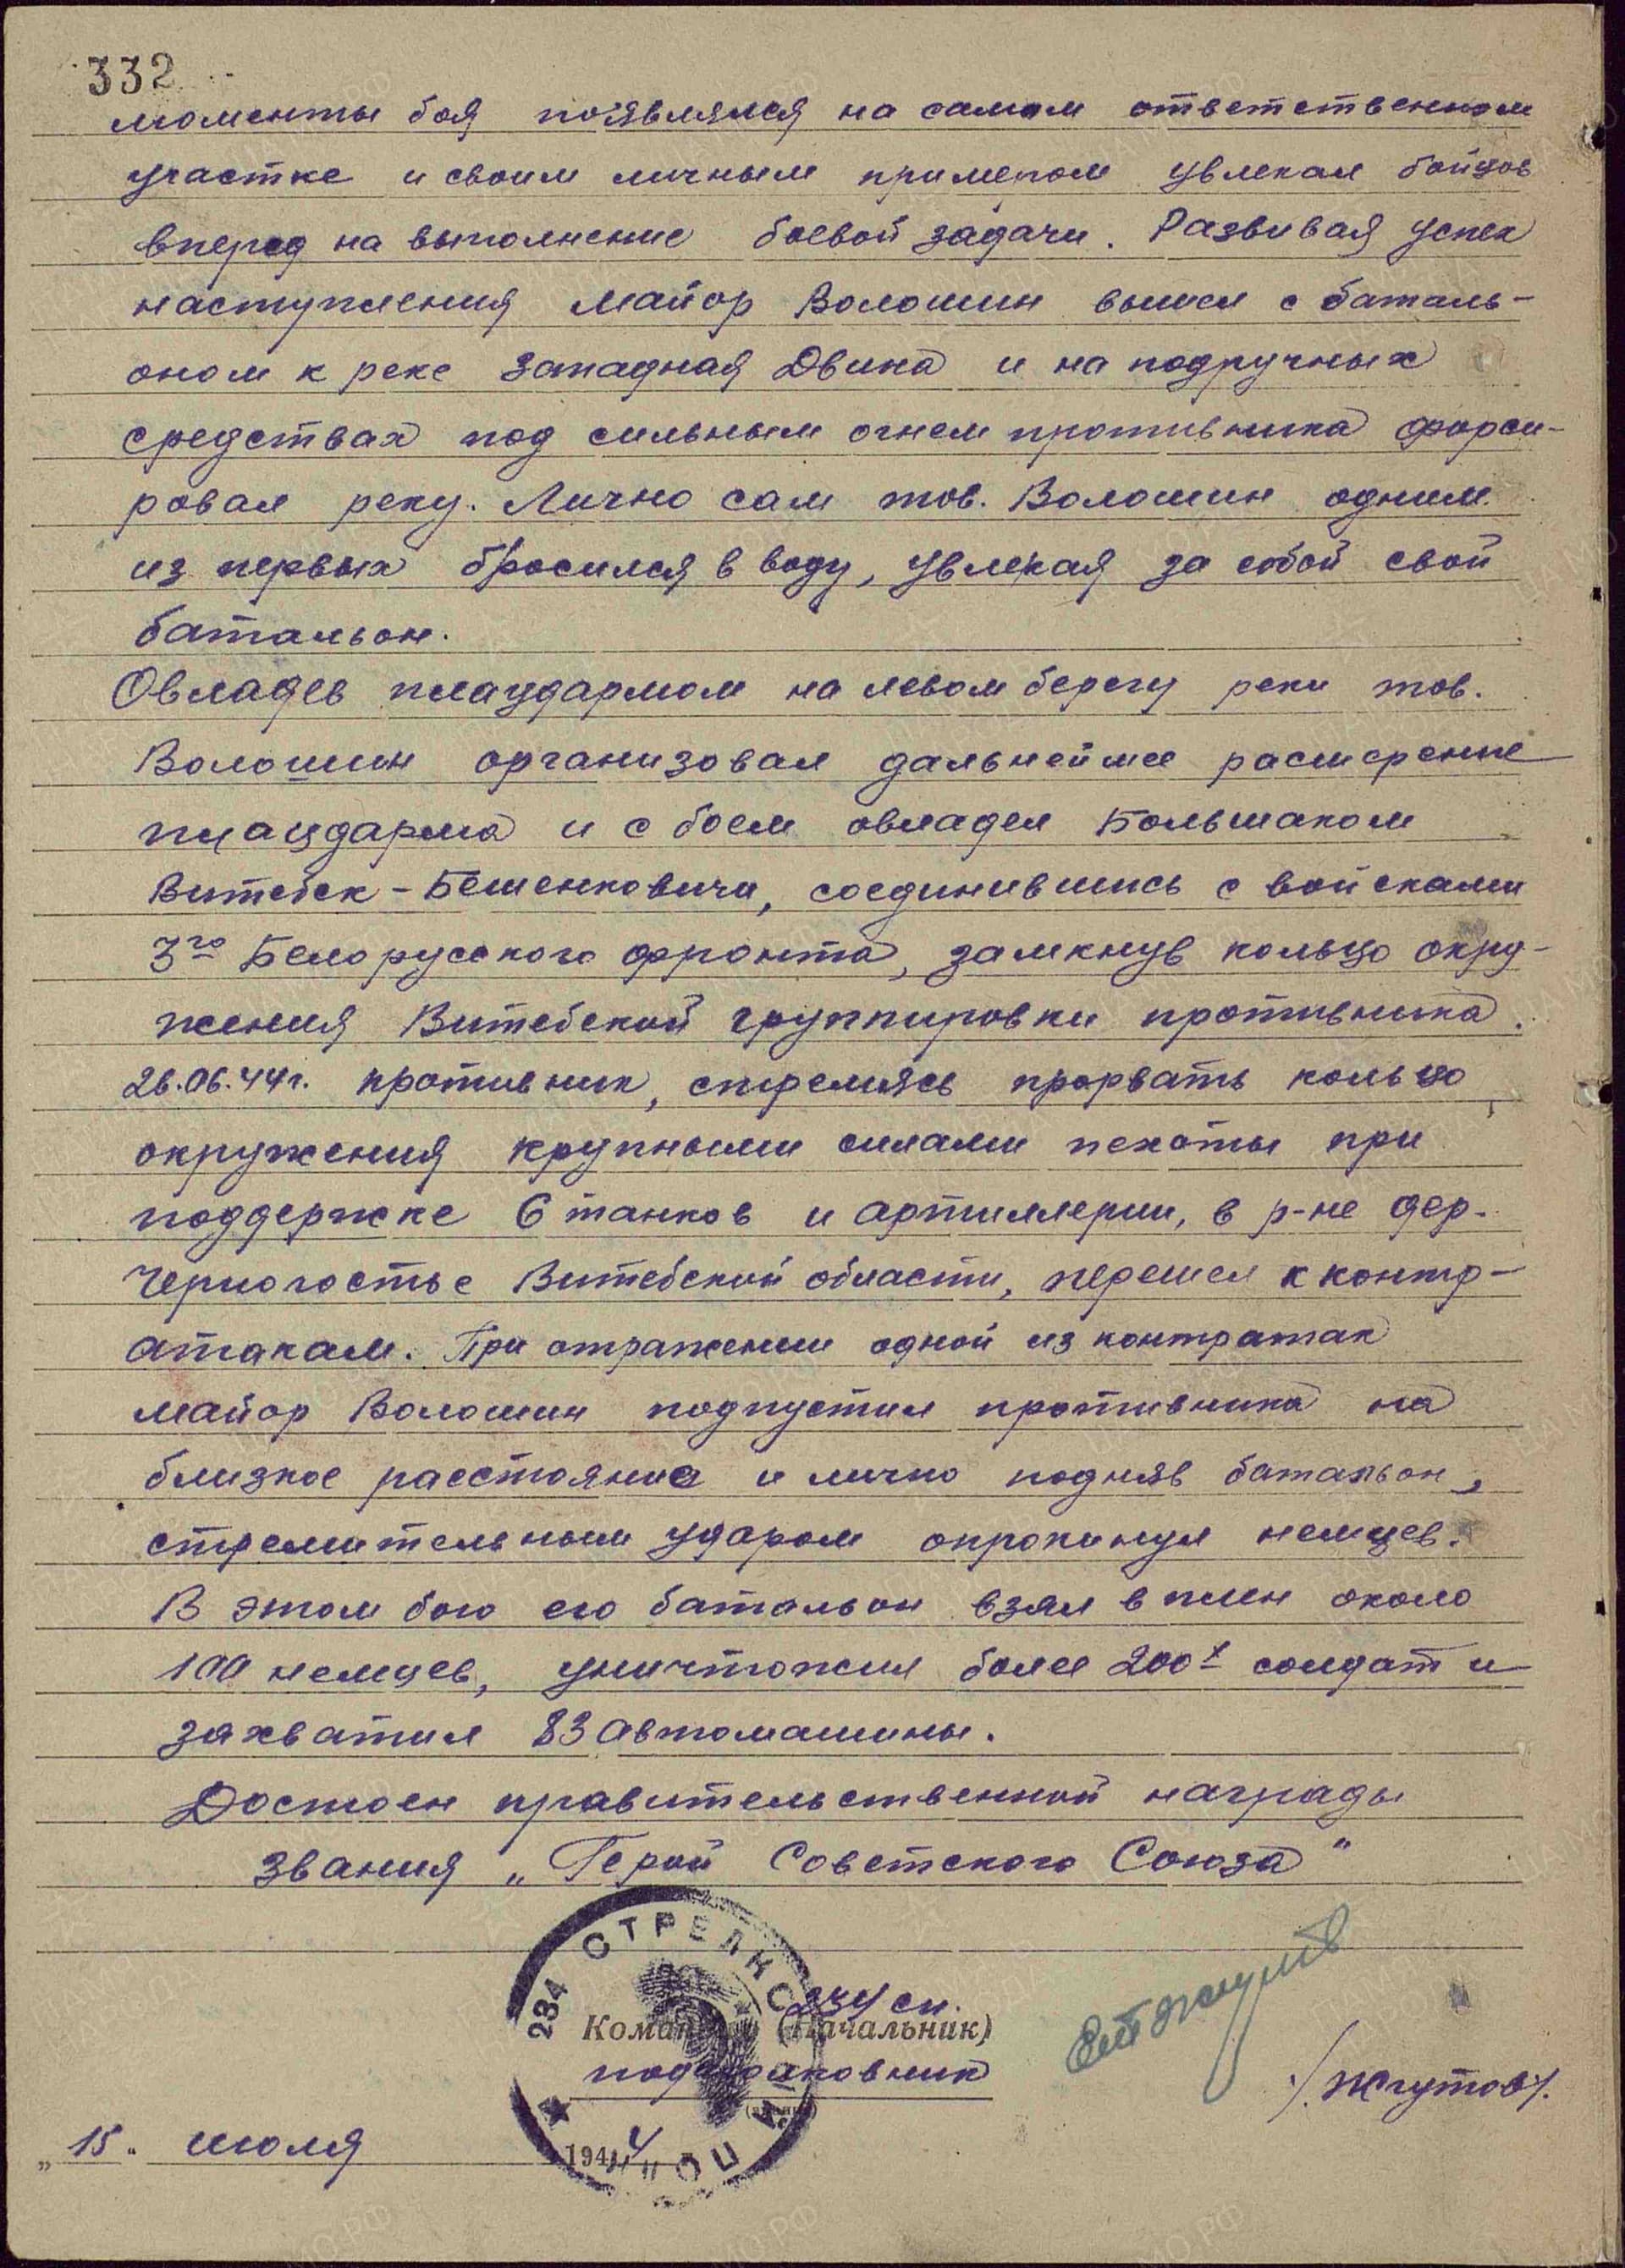 332
моменты боя появлялся на самом ответственном
участке и своим личным примером увлекал бойцов
вперед на выполнение боевой задачи. Развивая успех
наступления майор Волошин вышел с баталь-
оном к реке Западная Двина и на подручных
средствах под сильным огнем противника форси-
ровал реку. Лично сам тов. Волошин одним
из первых бросился в воду, увлекая за собой свой
батальон.
Овладев плацдармом на левом берегу реки тов.
Волошин организовал дальнейшее расширение
плацдарма и с боем овладел Большаком
Витебск - Бешенковичи, соединившись с войсками
3го Белорусского фронта, замкнув кольцо окру-
жения Витебской группировки противника.
26.06.44г. противник, стремясь прорвать кольцо
окружения крупными силами пехоты при
поддержке 6 танков и артиллерии, в р-не дер.
Черногостье Витебской области, перешел к контр-
атакам. При отражении одной из контратак
майор Волошин подпустил противника на
близкое расстояние и лично подняв батальон,
стремительным ударом опрокинул немцев.
В этом бою его батальон взял в плен около
100 немцев, уничтожил более 200х солдат и
захватил 83 автомашины.
Достоен правительственной награды
звания „Герой Советского Союза"
234 СТРЕЛКО
234 сп.
Командир (Начальник)
подполковник
/Жгутов/.
„15" июля 1944